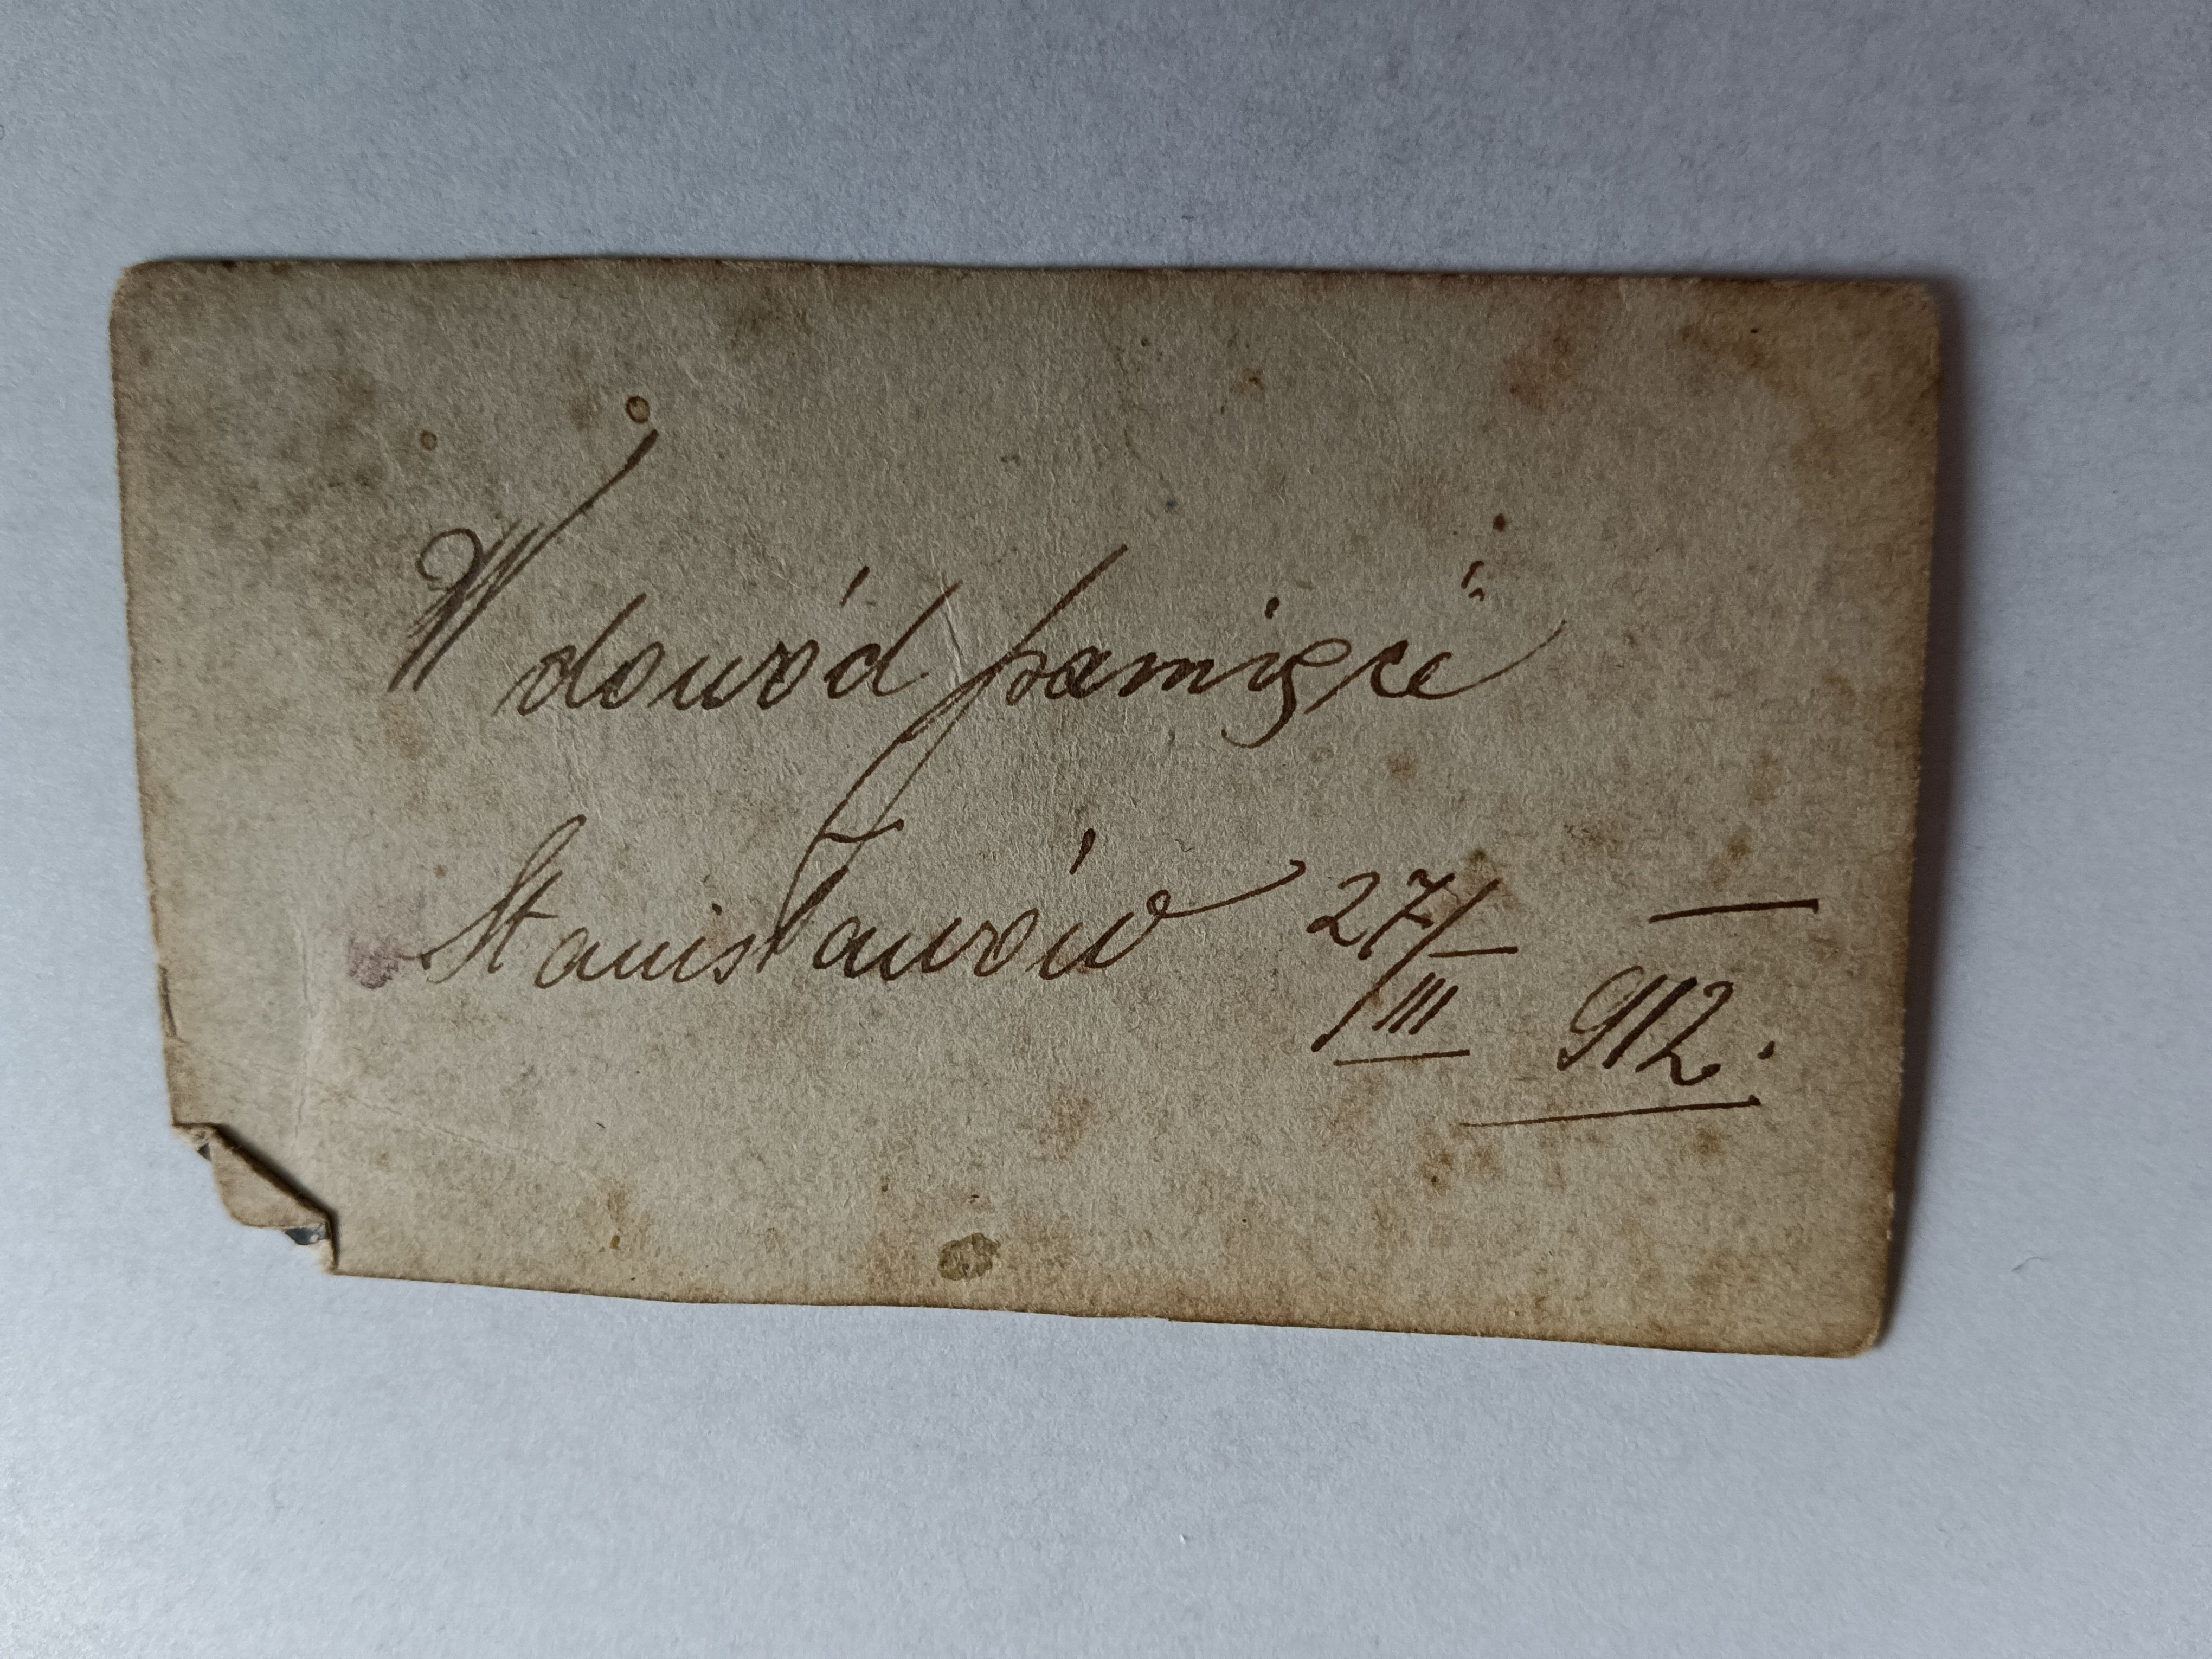 W dowód pamięci
Stanisławów 27/III 912.